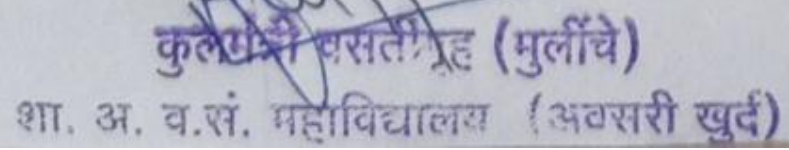 कुलमंत्री वसतीगृह (मुलींचे)
शा. अ. व.सं. महाविद्यालय (अवसरी खुर्द)